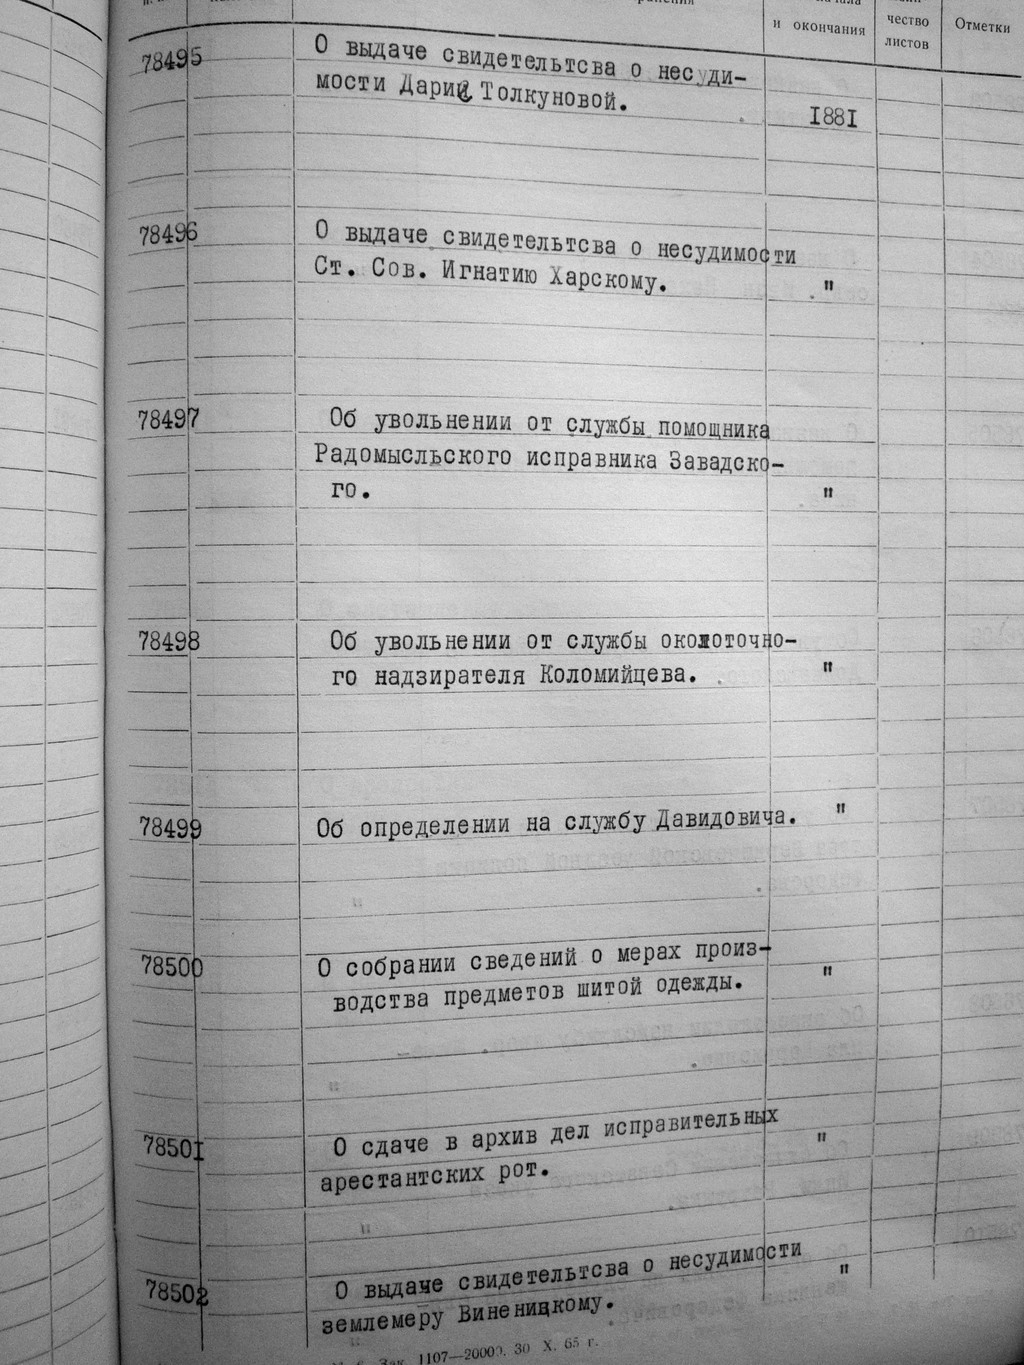 и окончания
чество
листов
Отметки
78495
О выдаче свидетельтсва о несуди-
мости Дарии Толкуновой.
1881
78496
О выдаче свидетельтсва о несудимости
Ст. Сов. Игнатию Харскому.
"
78497
Об увольнении от службы помощника
Радомысльского исправника Завадско-
го.
"
78498
Об увольнении от службы околоточно-
го надзирателя Коломийцева.
"
78499
Об определении на службу Давидовича. "
78500
О собрании сведений о мерах произ-
водства предметов шитой одежды.
"
78501
О сдаче в архив дел исправительных
арестантских рот.
"
78502
О выдаче свидетельтсва о несудимости
землемеру Виненицкому.
"
Зак. 1107—20000. 30 X. 65 г.